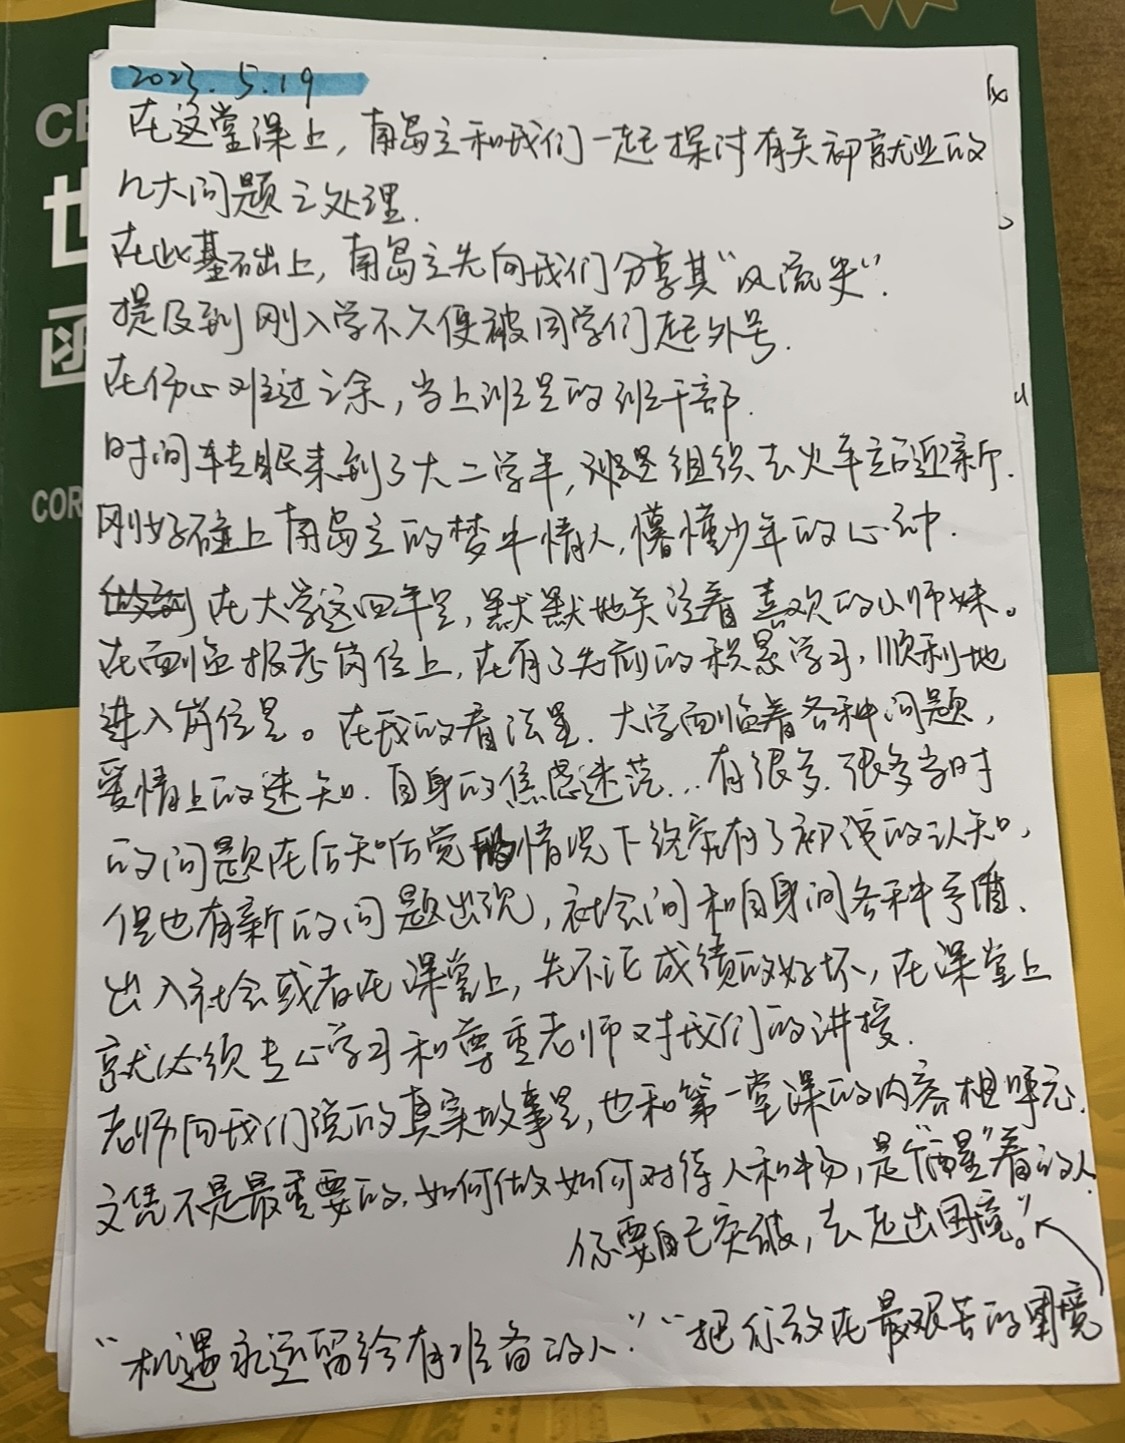 2023.5.19
在这堂课上，南岛主和我们一起探讨有关初就业的
几大问题之处理.
在此基础上，南岛主先向我们分享其“风流史”.
提及到刚入学不久便被同学们起外号.
在伤心难过之余，当上班里的班干部.
时间转眼来到了大二学年，班里组织去火车站迎新.
刚好碰上南岛主的梦中情人，懵懂少年的心动.
在大学这四年里，默默地关注着喜欢的小师妹。
在面临报考岗位上，在有了先前的积累学习，顺利地
进入岗位里。在我的看法里.大学面临着各种问题，
爱情上的迷知.自身的焦虑迷茫...有很多.很多当时
的问题在后知后觉的情况下终究有了初浅的认知，
但也有新的问题出现，社会间和自身间各种矛盾、
出入社会或者在课堂上，先不论成绩的好坏，在课堂上
就必须专心学习和尊重老师对我们的讲授.
老师向我们说的真实故事里，也和第一堂课的内容相呼应.
文凭不是最重要的.如何做如何对待人和物，是个“清醒”着的人.
你要自己突破，去走出困境。”
“机遇永远留给有准备的人.”“把你放在最艰苦的困境
CE
世
COR